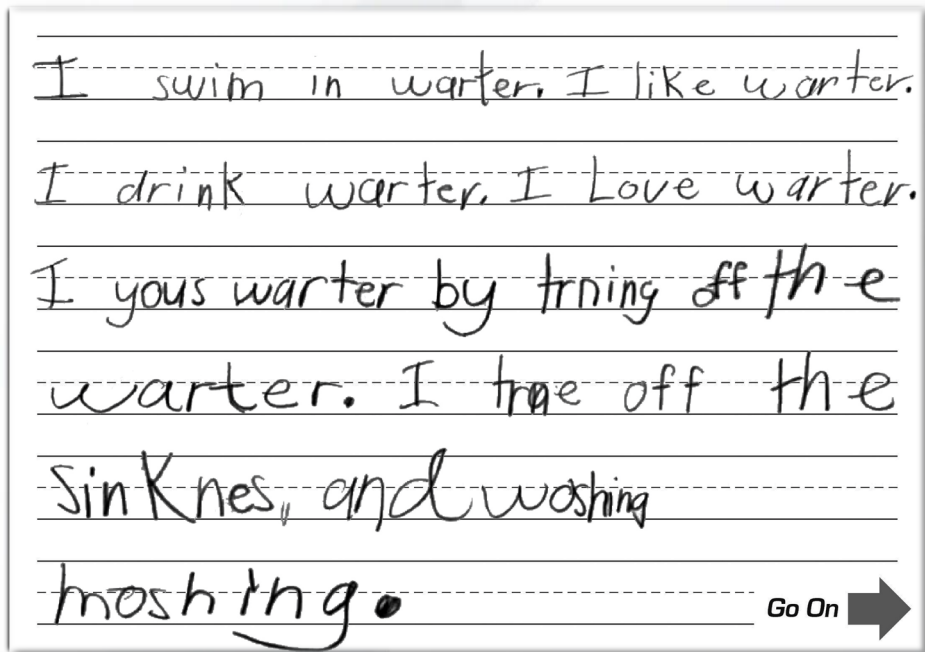 I swim in warter. I like warter.
I drink warter. I Love warter.
I yous warter by trning off the
warter. I trne off the
sinKnes, and woshing
moshing.
Go On